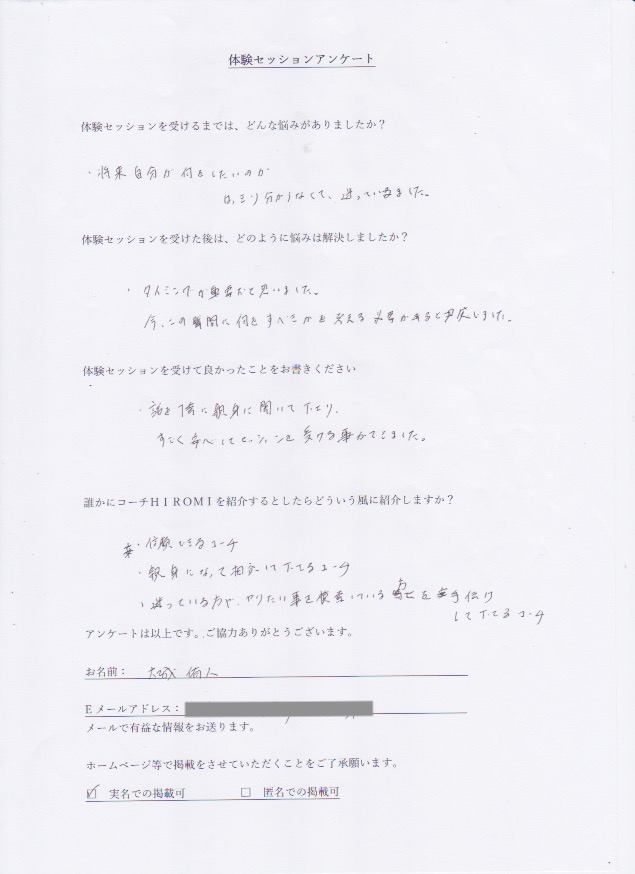 体験セッションアンケート
体験セッションを受けるまでは、どんな悩みがありましたか？
・将来自分が何をしたいのか
はっきり分からなくて、迷っていました。
体験セッションを受けた後は、どのように悩みは解決しましたか？
・タイミングが重要だと思いました。
今、この瞬間に何をすべきかを考える必要があると思いました。
体験セッションを受けて良かったことをお書きください
・話を親身に聞いて下さり、
すごく安心してセッションを受ける事ができました。
誰かにコーチＨＩＲＯＭＩを紹介するとしたらどういう風に紹介しますか？
・信頼できるコーチ
・親身になって相談して下さるコーチ
・迷っている方や、やりたい事を模索している お手伝い
して下さるコーチ
アンケートは以上です。ご協力ありがとうございます。
お名前：大城
Ｅメールアドレス：
メールで有益な情報をお送ります。
ホームページ等で掲載をさせていただくことをご了承願います。
☑ 実名での掲載可 □ 匿名での掲載可